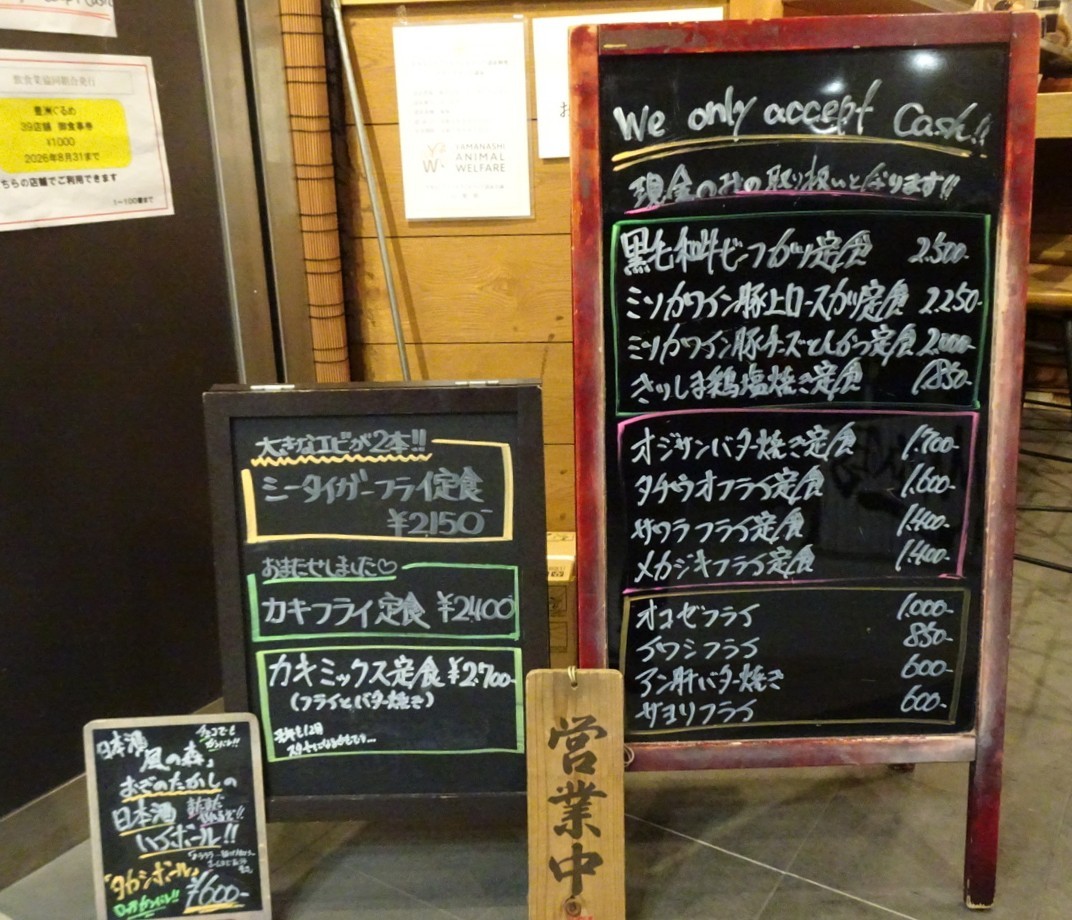 飲食業協同組合発行
豊洲ぐるめ
39店舗 御食事券
¥1000
2026年8月31まで
ちらの店舗でご利用できます
YAMANASHI
ANIMAL
WELFARE
We only accept Cash!!
現金のみの取り扱いとなります!!
黒毛和牛ビーフカツ定食 2.500-
ミソカワイン豚上ロースカツ定食 2.250-
ミソカワイン豚チーズとんかつ定食 2.000-
きりしま鶏塩焼き定食 1.850-
オジサンバター焼き定食 1.700-
タチウオフライ定食 1.600-
サワラフライ定食 1.400-
メカジキフライ定食 1.400-
オコゼフライ 1.000-
イワシフライ 850-
アン肝バター焼き 600-
サヨリフライ 600-
大きなエビが2本!!
ミータイガーフライ定食
¥2150-
おまたせしました♡
カキフライ定食 ¥2400
カキミックス定食 ¥2.700-
(フライとバター焼き)
日本酒
風の森」
おぞのたかしの
日本酒
いつボール!!
「タカシボール」
¥600-
営業中